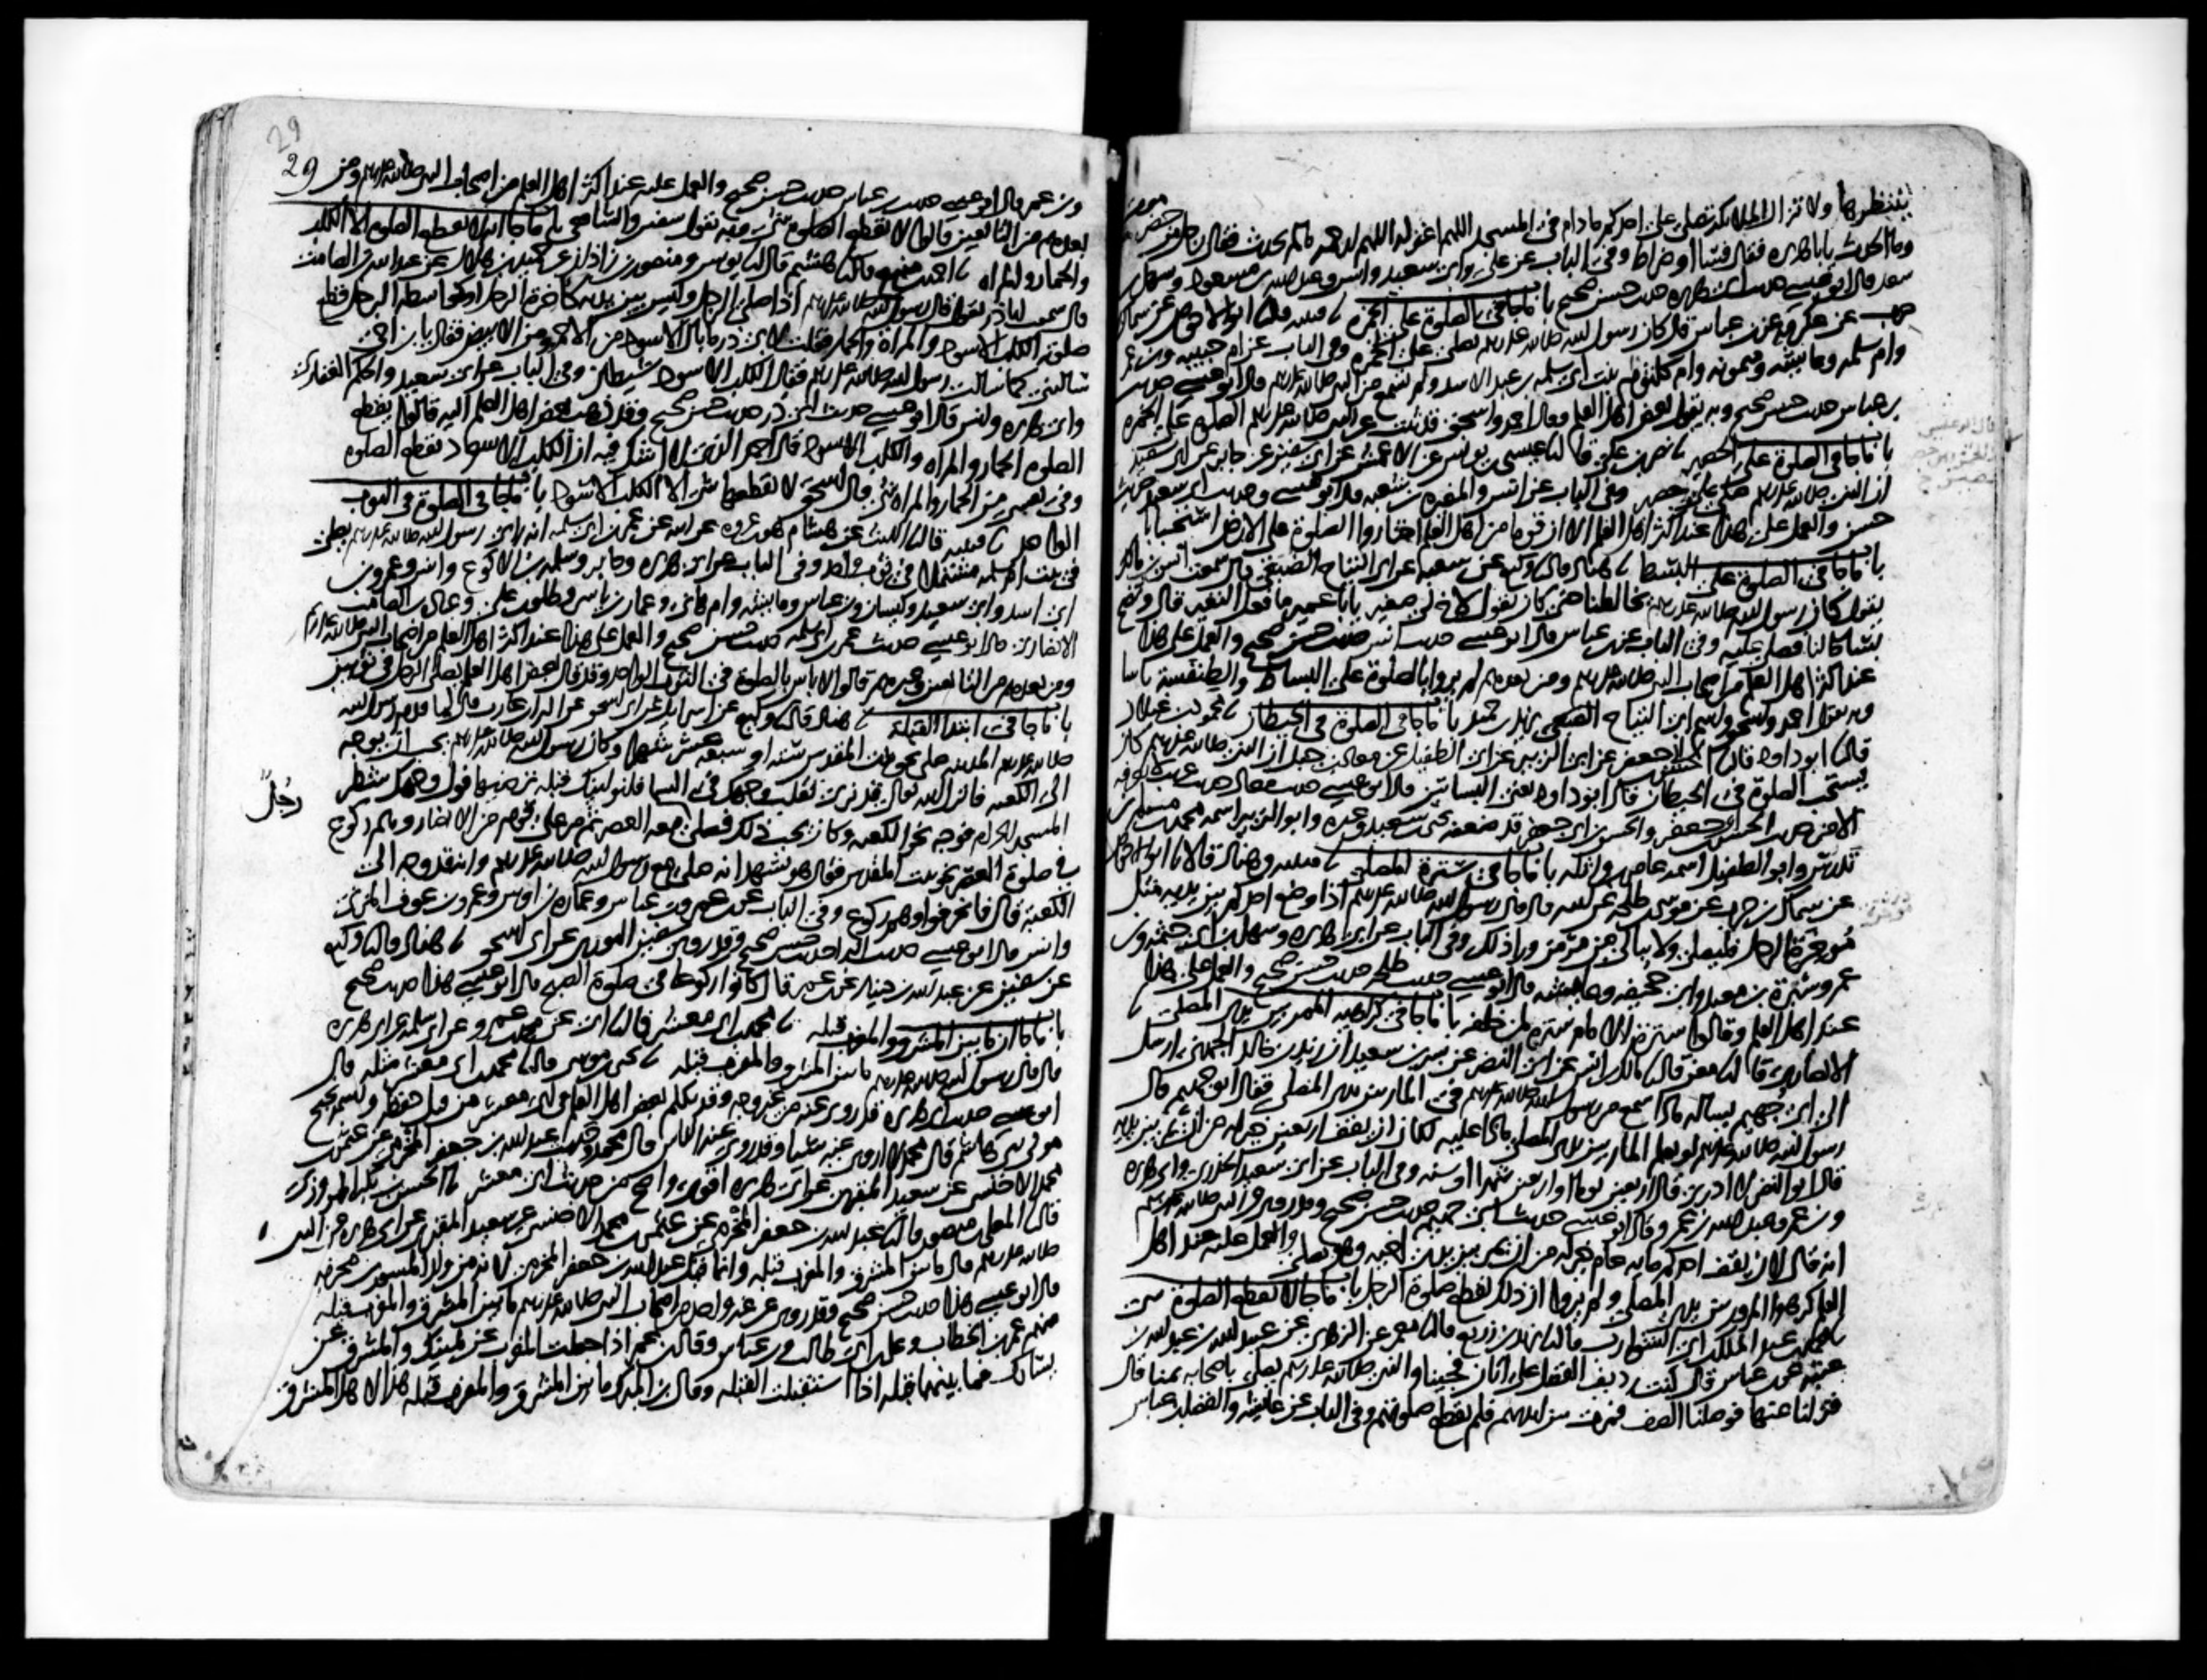 ينتظرها ولا تزال الملائكة تصلي على احدكم ما دام في المسجد اللهم اغفر له اللهم ارحمه ما لم يحدث فقال رجل من حضرموت
وما الحدث يابا هريرة فقال فساء او ضراط وفي الباب عن علي وابي سعيد وانس وعبد الله بن مسعود وسهل بن
سعد قال ابو عيسى حديث ابي هريرة حديث حسن صحيح باب ما جا في الصلوة على الخمرة قتيبة قال نا ابو الاحوص عن سماك
حرب عن عكرمة عن ابن عباس قال كان رسول الله صلى الله عليه وسلم يصلي على الخمرة وفي الباب عن ام حبيبة وابن عمر
وام سلمة وعايشة وميمونة وام كلثوم بنت ابي سلمة بن عبد الاسد ولم تسمع من النبي صلى الله عليه وسلم قال ابو عيسى حديث
بن عباس حديث حسن صحيح وبه يقول بعض اهل العلم وقال احمد واسحق قد ثبت عن النبي صلى الله عليه وسلم الصلوة على الخمرة
باب ما جا في الصلوة على الحصير نصر بن علي قال نا عيسى بن يونس عن الاعمش عن ابي سفين عن جابر عن ابي سعيد
ان النبي صلى الله عليه وسلم صلى على حصير وفي الباب عن انس والمغيرة بن شعبة قال ابو عيسى وحديث ابي سعيد حديث
حسن والعمل على هذا عند اكثر اهل العلم الا ان قوما من اهل العلم اختاروا الصلوة على الارض استحبابا
باب ما جا في الصلوة على البسط هناد قال نا وكيع عن شعبة عن ابي التياح الضبعي قال سمعت انس بن مالك
يقول كان رسول الله صلى الله عليه وسلم يخالطنا حتى كان يقول لاخ لي صغير يابا عمير ما فعل النغير قال ونضح
بساط لنا فصلى عليه وفي الباب عن ابن عباس قال ابو عيسى حديث انس حديث حسن صحيح والعمل على هذا
عند اكثر اهل العلم من اصحاب النبي صلى الله عليه وسلم ومن بعدهم لم يروا بالصلوة على البساط والطنفسة باسا
وبه يقول احمد واسحق واسم ابي التياح الضبعي يزيد بن حميد باب ما جا في الصلوة في الحيطان محمود بن غيلان
قال نا ابو داود قال نا الحسن بن ابي جعفر عن ابي الزبير عن ابي الطفيل عن معاذ بن جبل ان النبي صلى الله عليه وسلم كان
يستحب الصلوة في الحيطان قال ابو داود يعني البساتين قال ابو عيسى حديث معاذ حديث غريب لا نعرفه
الا من حديث الحسن بن ابي جعفر والحسن بن ابي جعفر قد ضعفه يحيى بن سعيد وغيره وابو الزبير اسمه محمد بن مسلم بن
تدرس وابو الطفيل اسمه عامر بن واثلة باب ما جا في سترة المصلي قتيبة وهناد قالا نا ابو الاحوص
عن سماك بن حرب عن موسى بن طلحة عن ابيه قال قال رسول الله صلى الله عليه وسلم اذا وضع احدكم بين يديه مثل
موخرة الرحل فليصل ولا يبالي من مر من وراء ذلك وفي الباب عن ابي هريرة وسهل بن ابي حثمة وابن
عمر وسبرة بن معبد وابي جحيفة وعايشة قال ابو عيسى حديث طلحة حديث حسن صحيح والعمل على هذا
عند اهل العلم وقالوا سترة الامام سترة لمن خلفه باب ما جا في كراهية الممر بين يدي المصلي
الانصاري قال نا معن قال نا مالك بن انس عن ابي النضر عن بسر بن سعيد ان زيد بن خالد الجهني ارسل
الى ابي جهيم يسأله ماذا سمع من رسول الله صلى الله عليه وسلم في المار بين يدي المصلي فقال ابو جهيم قال
رسول الله صلى الله عليه وسلم لو يعلم المار بين يدي المصلي ماذا عليه لكان ان يقف اربعين خير له من ان يمر بين يديه
قال ابو النضر لا ادري قال اربعين يوما او اربعين شهرا او سنة وفي الباب عن ابي سعيد الخدري وابي هريرة
وابن عمر وعبد الله بن عمرو قال ابو عيسى حديث ابي جهيم حديث حسن صحيح وقد روي عن النبي صلى الله عليه وسلم
انه قال لان يقف احدكم ماية عام خير له من ان يمر بين يدي اخيه وهو يصلي والعمل عليه عند اهل
العلم كرهوا المرور بين يدي المصلي ولم يروا ان ذلك يقطع صلوة الرجل باب ما جا لا يقطع الصلوة شي
محمد بن عبد الملك بن ابي الشوارب قال نا يزيد بن زريع قال نا معمر عن الزهري عن عبيد الله بن عبد الله بن
عتبة عن ابن عباس قال كنت رديف الفضل على اتان فجينا والنبي صلى الله عليه وسلم يصلي باصحابه بمنا قال
فنزلنا عنها فوصلنا الصف فمرت بين ايديهم فلم تقطع صلوتهم وفي الباب عن عايشة والفضل بن عباس
29
29
وابن عمر قال ابو عيسى حديث ابن عباس حديث حسن صحيح والعمل عليه عند اكثر اهل العلم من اصحاب النبي صلى الله عليه وسلم ومن
بعدهم من التابعين قالوا لا يقطع الصلوة شي وبه يقول سفين والشافعي باب ما جا انه لا يقطع الصلوة الا الكلب
والحمار والمراة احمد بن منيع قال نا هشيم قال نا يونس ومنصور بن زاذان عن حميد بن هلال عن عبد الله بن الصامت
قال سمعت ابا ذر يقول قال رسول الله صلى الله عليه وسلم اذا صلى الرجل وليس بين يديه كاخرة الرحل او كواسطة الرحل قطع
صلوته الكلب الاسود والمراة والحمار فقلت لابي ذر ما بال الاسود من الاحمر ومن الابيض فقال يا بن اخي
سالتني كما سالت رسول الله صلى الله عليه وسلم فقال الكلب الاسود شيطان وفي الباب عن ابي سعيد والحكم الغفاري
وابي هريرة وانس قال ابو عيسى حديث ابي ذر حديث حسن صحيح وقد ذهب بعض اهل العلم اليه قالوا يقطع
الصلوة الحمار والمراة والكلب الاسود قال احمد الذي لا اشك فيه ان الكلب الاسود يقطع الصلوة
وفي نفسي من الحمار والمراة شي قال اسحق لا يقطعها شي الا الكلب الاسود باب ما جا في الصلوة في الثوب
الواحد قتيبة قال نا الليث عن هشام هو بن عروة عن ابيه عن عمر بن ابي سلمة انه راى رسول الله صلى الله عليه وسلم يصلي
في بيت ام سلمة مشتملا في ثوب واحد وفي الباب عن ابي هريرة وجابر وسلمة بن الاكوع وانس وعمرو بن
ابي اسد وابي سعيد وكيسان وابن عباس وعايشة وام هاني وعمار بن ياسر وطلق بن علي وعبادة بن الصامت
الانصاري قال ابو عيسى حديث عمر بن ابي سلمة حديث حسن صحيح والعمل على هذا عند اكثر اهل العلم من اصحاب النبي صلى الله عليه وسلم
ومن بعدهم من التابعين وغيرهم قالوا لا باس بالصلوة في الثوب الواحد وقد قال بعض اهل العلم يصلي الرجل في ثوبين
باب ما جا في ابتدا القبلة هناد قال نا وكيع عن اسرائيل عن ابي اسحق عن البراء بن عازب قال لما قدم رسول الله
صلى الله عليه وسلم المدينة صلى نحو بيت المقدس ستة او سبعة عشر شهرا وكان رسول الله صلى الله عليه وسلم يحب ان يوجه
الى الكعبة فانزل الله تعالى قد نرى تقلب وجهك في السما فلنولينك قبلة ترضيها فول وجهك شطر
المسجد الحرام فوجه نحو الكعبة وكان يحب ذلك فصلى معه العصر ثم مر على قوم من الانصار وهم ركوع
رجل
في صلوة العصر نحو بيت المقدس فقال هو يشهد انه صلى مع رسول الله صلى الله عليه وسلم وانه قد وجه الى
الكعبة قال فانحرفوا وهم ركوع وفي الباب عن ابن عمر وابن عباس وعمارة بن اوس وعمرو بن عوف المزني
وانس قال ابو عيسى حديث البراء حديث حسن صحيح وقد روى سفين الثوري عن ابي اسحق هناد قال نا وكيع
عن سفين عن عبد الله بن دينار عن ابن عمر قال كانوا ركوعا في صلوة الصبح قال ابو عيسى هذا حديث صحيح
باب ما جا ان ما بين المشرق والمغرب قبلة محمد بن ابي معشر قال نا ابي عن محمد بن عمرو عن ابي سلمة عن ابي هريرة
قال قال رسول الله صلى الله عليه وسلم ما بين المشرق والمغرب قبلة يحيى بن موسى قال نا محمد بن ابي معشر مثله قال
ابو عيسى حديث ابي هريرة قد روي عنه من غير وجه وقد تكلم بعض اهل العلم في ابي معشر من قبل حفظه واسمه نجيح
مولى بني هاشم قال محمد لا اروي عنه شيئا وقد روى عنه الناس قال محمد وحديث عبد الله بن جعفر المخرمي عن عثمن بن
محمد الاخنسي عن سعيد المقبري عن ابي هريرة اقوى واصح من حديث ابي معشر نا الحسن بن بكر المروزي
قال نا المعلى بن منصور قال نا عبد الله بن جعفر المخرمي عن عثمن بن محمد الاخنسي عن سعيد المقبري عن ابي هريرة عن النبي
صلى الله عليه وسلم قال ما بين المشرق والمغرب قبلة وانما قيل عبد الله بن جعفر المخرمي لانه من ولد المسور بن مخرمة
قال ابو عيسى هذا حديث حسن صحيح وقد روي عن غير واحد من اصحاب النبي صلى الله عليه وسلم ما بين المشرق والمغرب قبلة
منهم عمر بن الخطاب وعلي بن ابي طالب وابن عباس وقال بن عمر اذا جعلت المغرب عن يمينك والمشرق عن
يسارك فما بينهما قبلة اذا استقبلت القبلة وقال بن المبارك ما بين المشرق والمغرب قبلة هذا لاهل المشرق